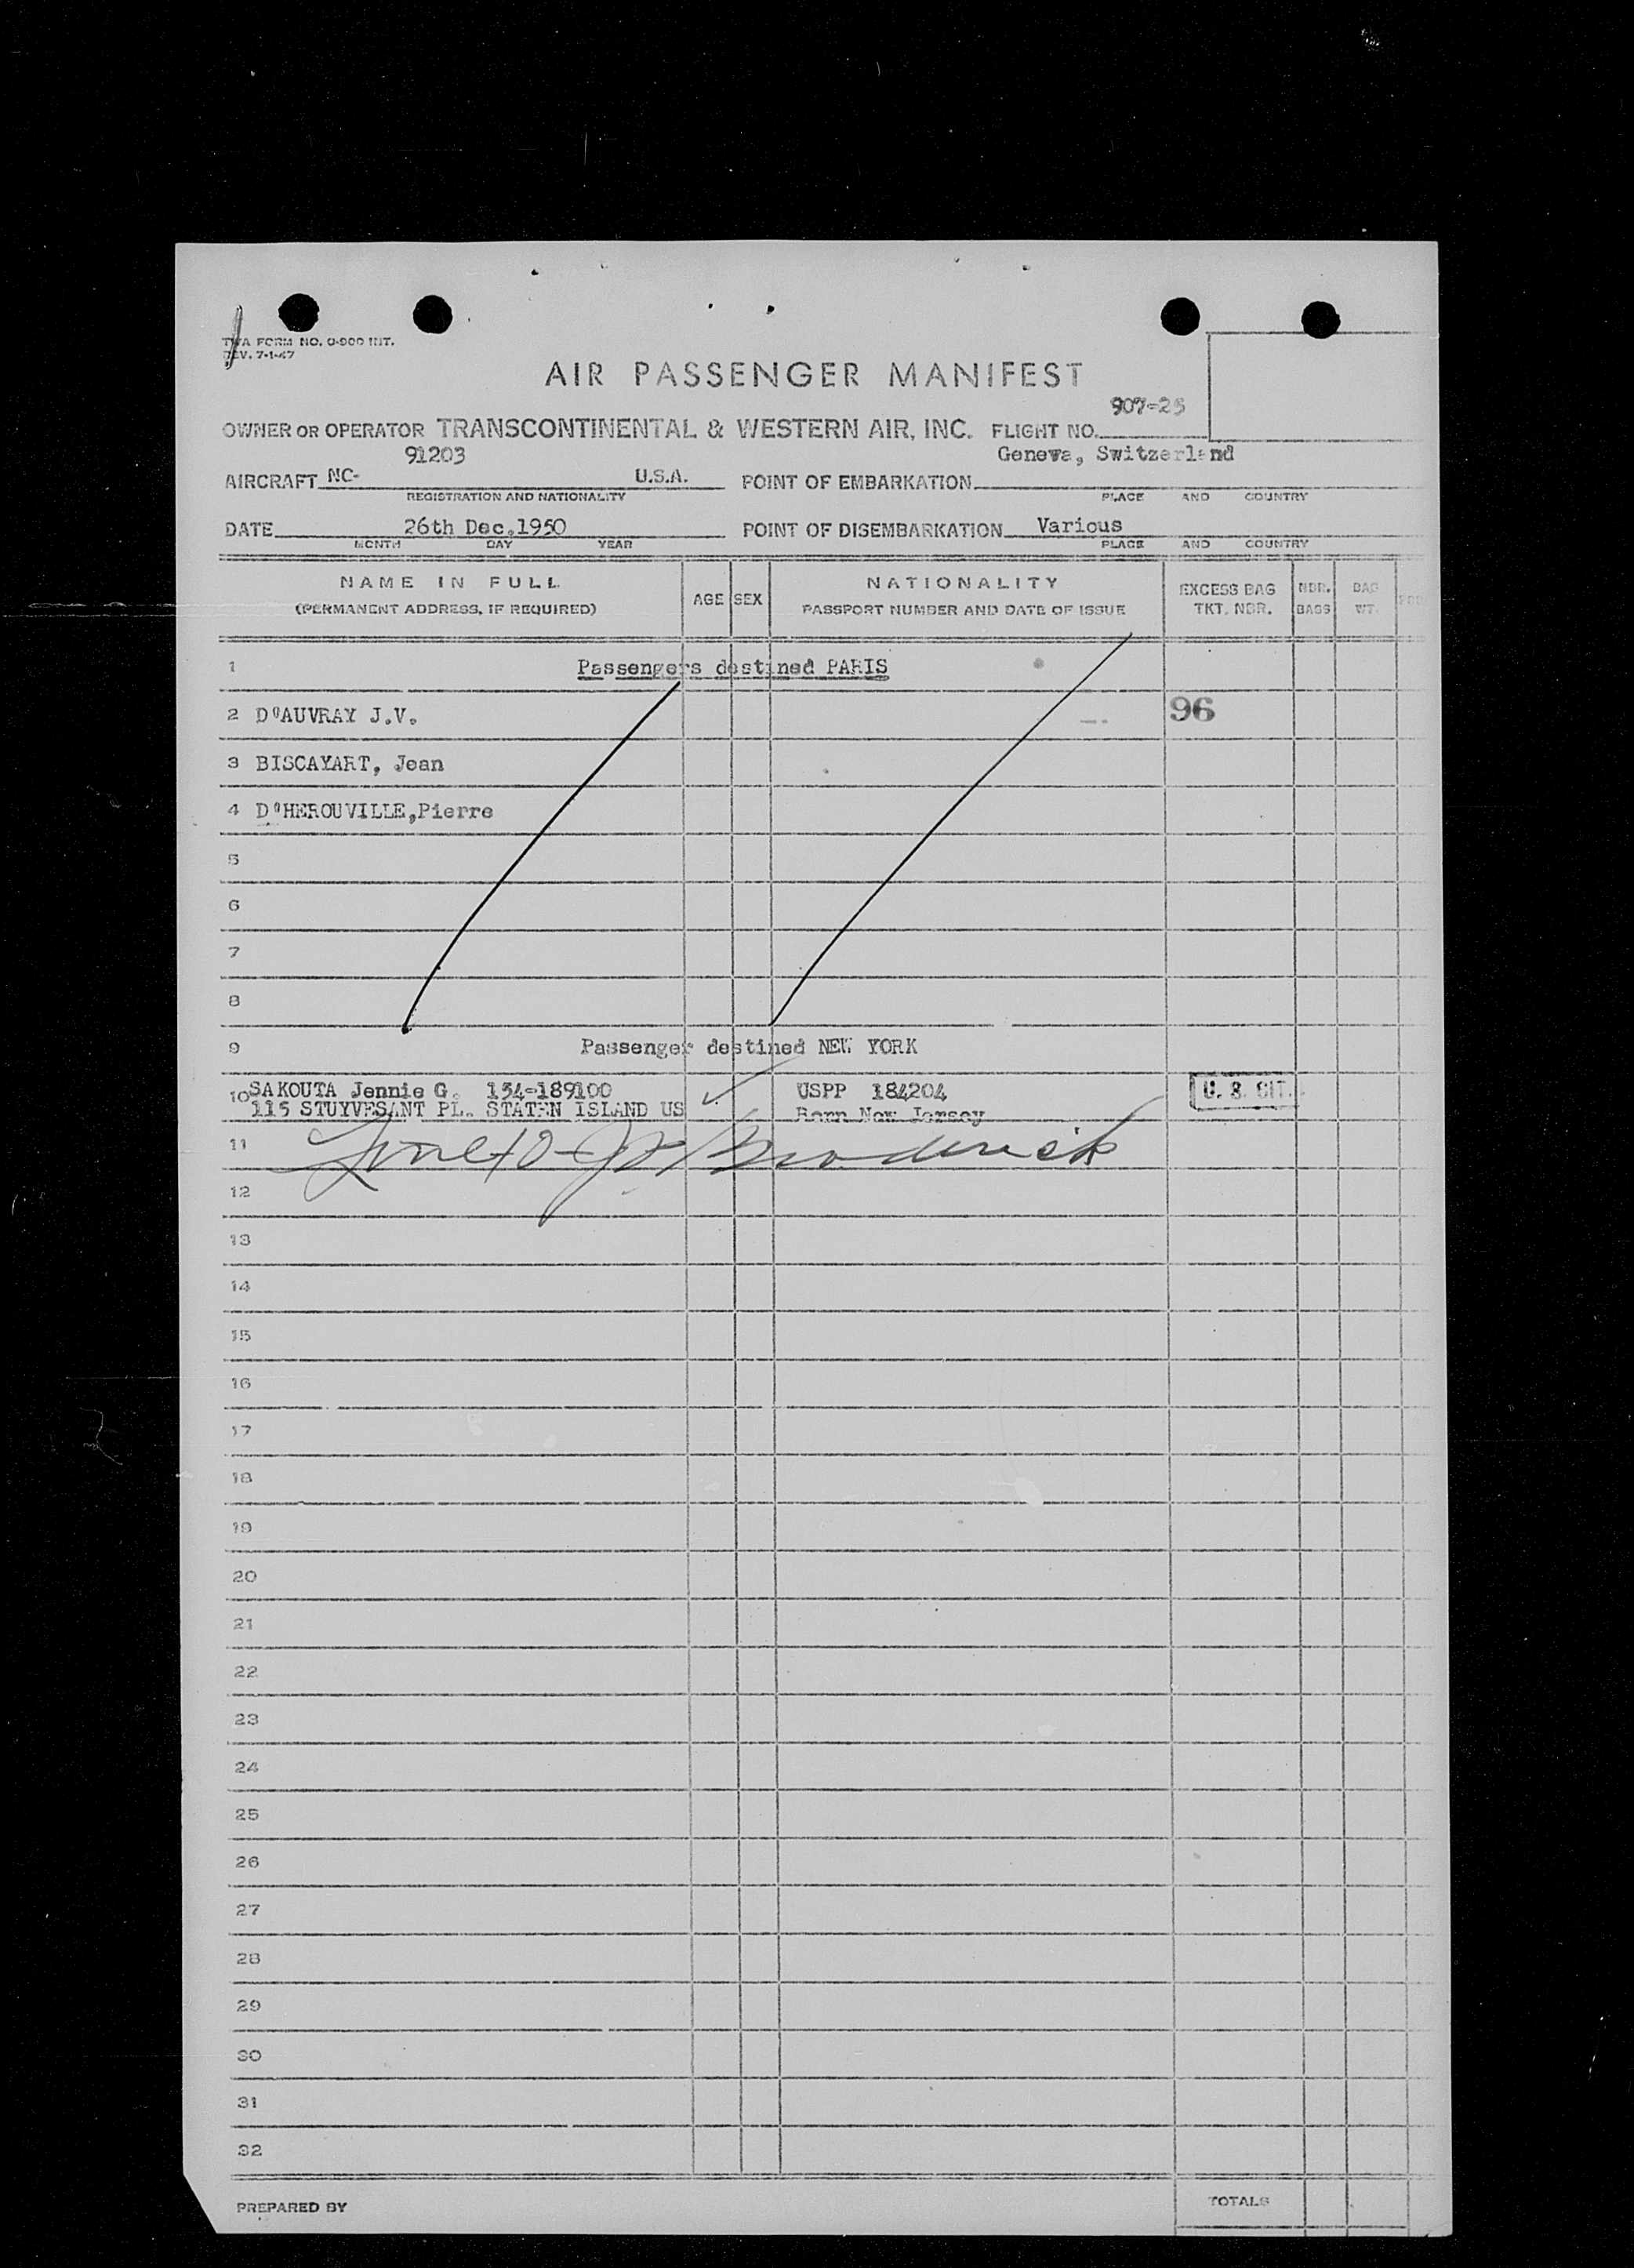 TWA FORM NO. O-900 INT.
REV. 7-1-47
AIR PASSENGER MANIFEST
907-25
OWNER OR OPERATOR TRANSCONTINENTAL & WESTERN AIR, INC. FLIGHT NO.
91203 Geneva, Switzerland
AIRCRAFT NC- U.S.A. POINT OF EMBARKATION
REGISTRATION AND NATIONALITY PLACE AND COUNTRY
DATE 26th Dec.1950 POINT OF DISEMBARKATION Various
MONTH DAY YEAR PLACE AND COUNTRY
NAME IN FULL
(PERMANENT ADDRESS, IF REQUIRED)
AGE SEX
NATIONALITY
PASSPORT NUMBER AND DATE OF ISSUE
EXCESS BAG
TKT. NBR.
NBR.
BAGS
BAG
WT.
1 Passengers destined PARIS
2 D'AUVRAY J.V. 96
3 BISCAYART, Jean
4 D'HEROUVILLE,Pierre
5
6
7
8
9 Passenger destined NEW YORK
10 SAKOUTA Jennie G. 154-189100 USPP 184204 U. S. CIT.
115 STUYVESANT PL. STATEN ISLAND US Born New Jersey
11 Broderick
12
13
14
15
16
17
18
19
20
21
22
23
24
25
26
27
28
29
30
31
32
PREPARED BY TOTALS